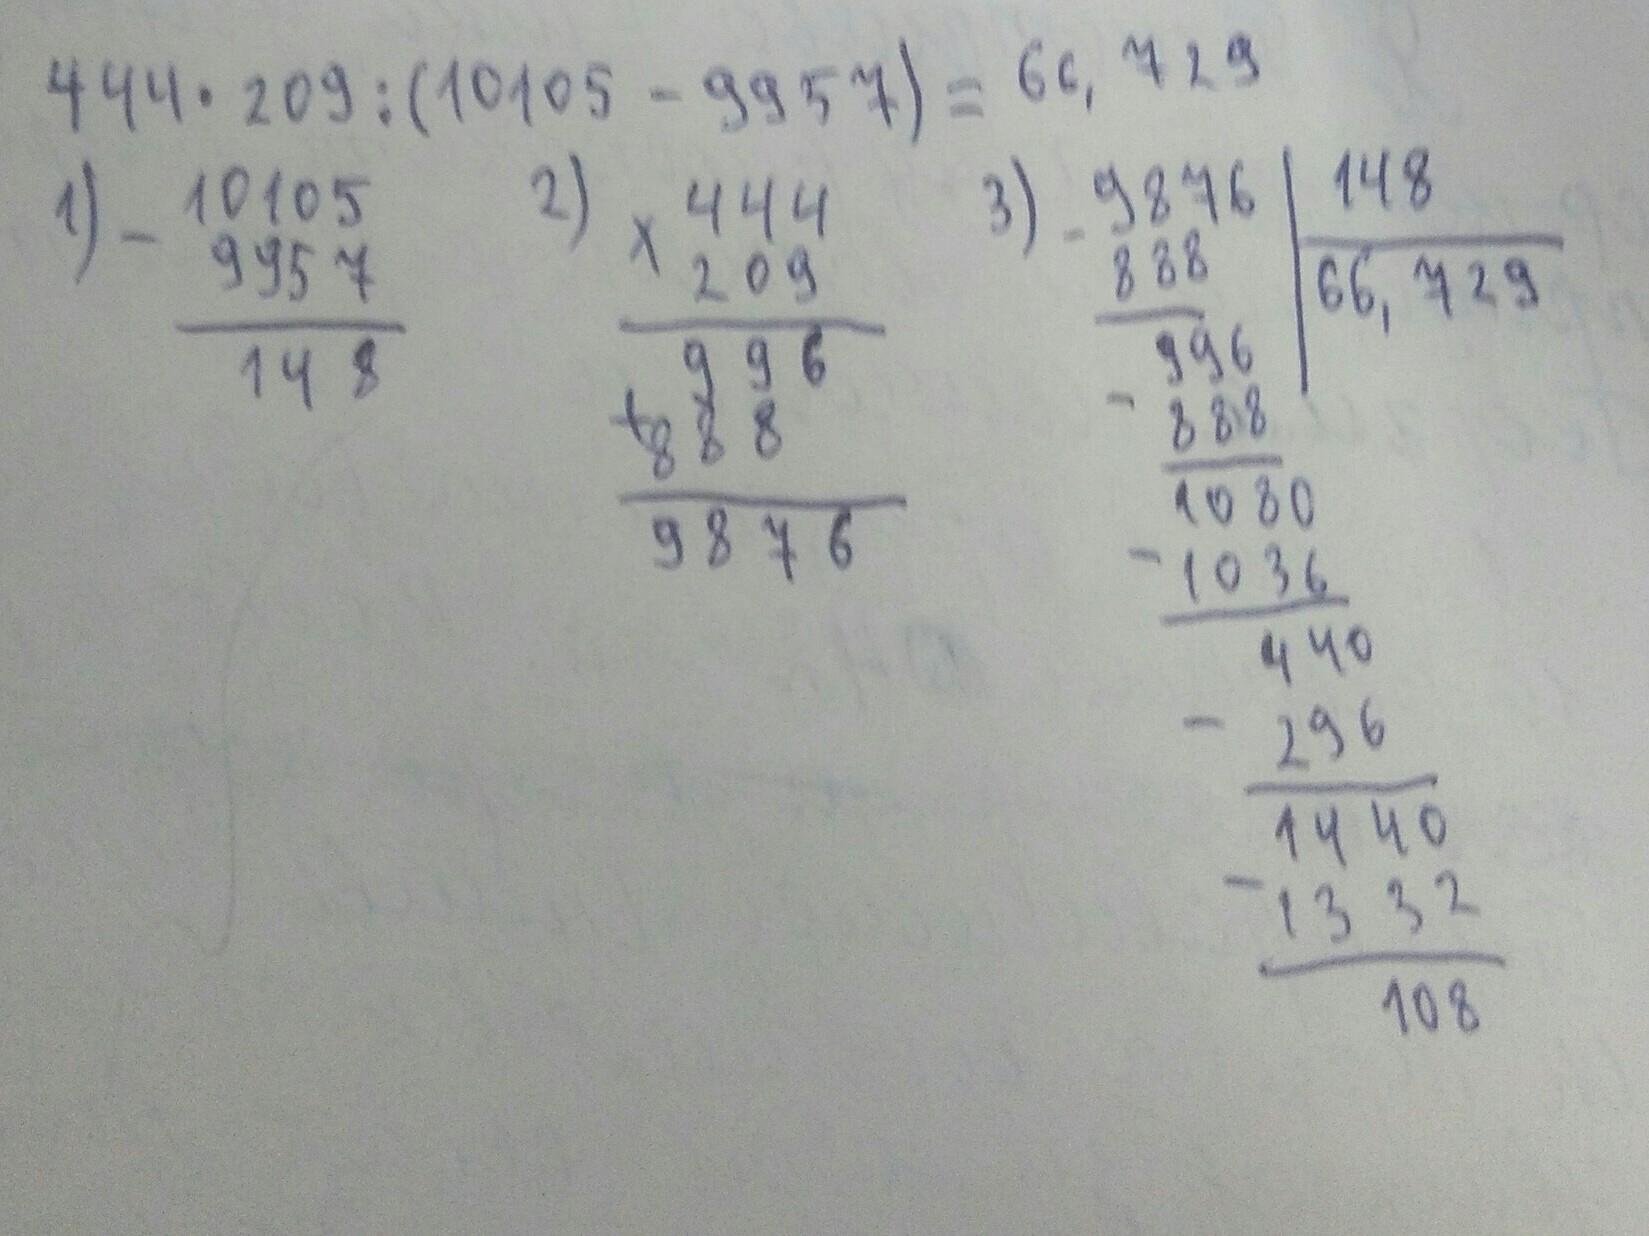 444 · 209 : (10105 - 9957) = 66,729
1) - 10105
9957
148
2) x 444
209
996
+ 888
9876
3) - 9876 | 148
888 | 66,729
996
- 888
1080
- 1036
440
- 296
1440
- 1332
108